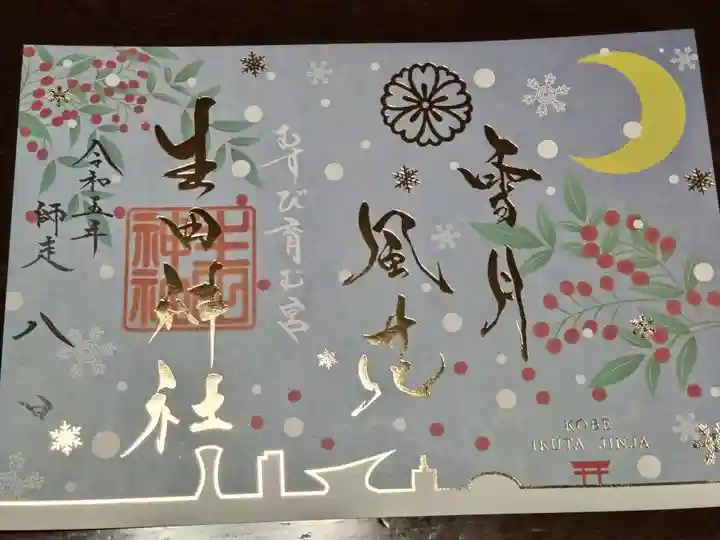 雪月
風花
むすび育む宮
生田神社
生田
神社
令和五年
師走 八日
KOBE
IKUTA JINJA